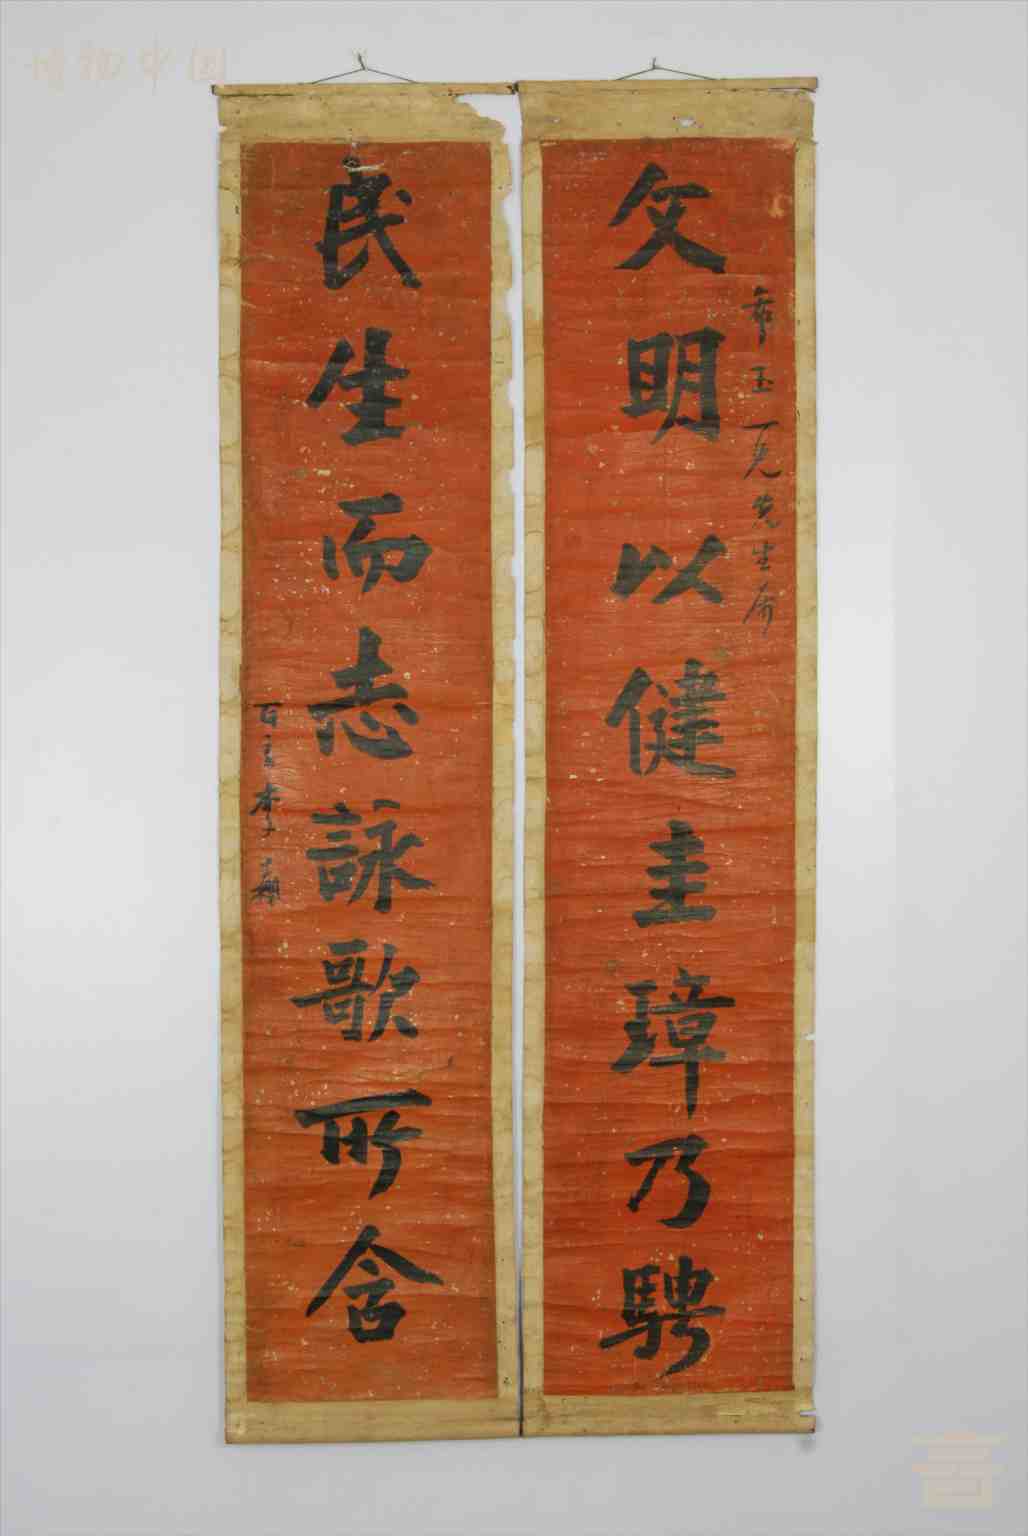 文明以健圭璋乃騁
玉一兄先生屬
民生而志詠歌所含
李
博物中国